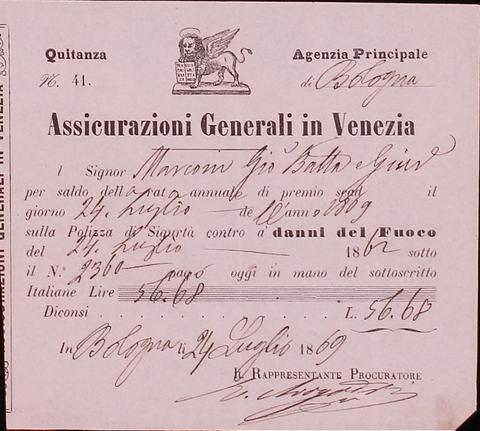 Quitanza
N. 41.
Agenzia Principale
di Bologna
Assicurazioni Generali in Venezia
l Signor Marconi Gio Batta e Gius
per saldo della rata annuale di premio scad il
giorno 24 Luglio de ll'anno 1869
sulla Polizza di Sicurtà contro a' danni del Fuoco
del 24 Luglio 1862 sotto
il N.º 2360 pagò oggi in mano del sottoscritto
Italiane Lire 56.68
Diconsi . . . . . . . . . . L. 56.68
In Bologna li 24 Luglio 1869
IL RAPPRESENTANTE PROCURATORE
GENERALI IN VENEZIA